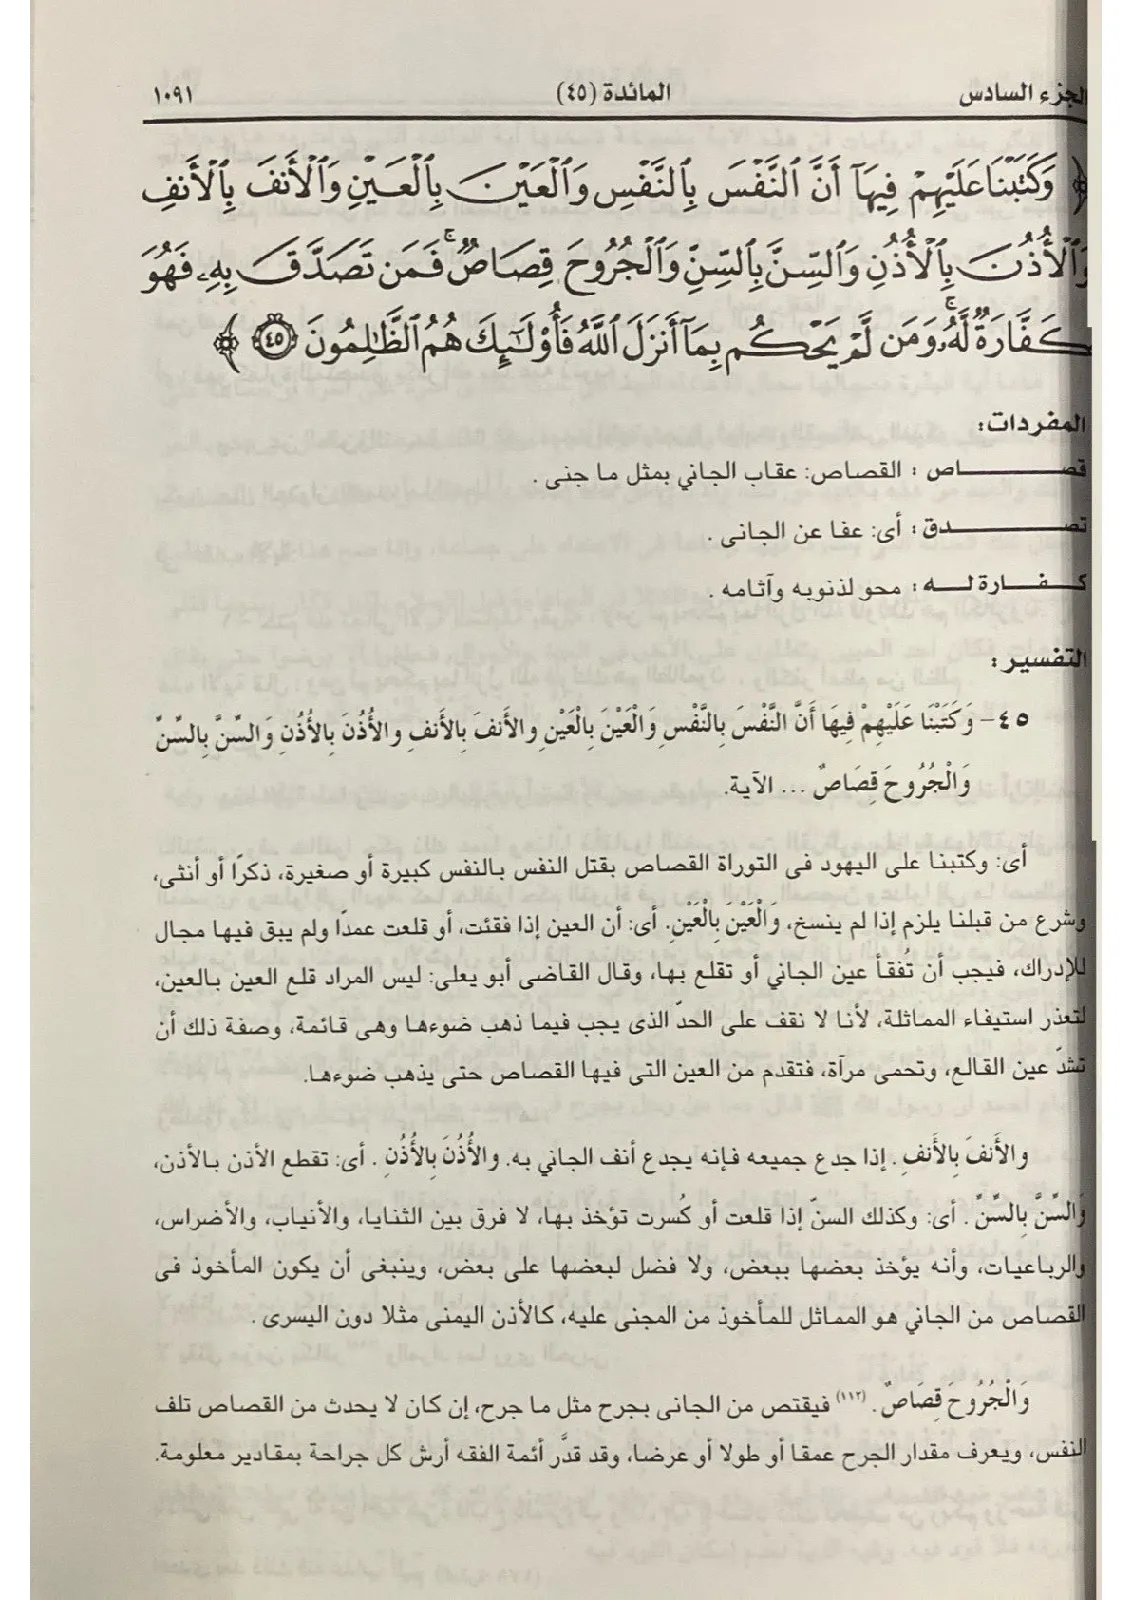 الجزء السادس المائدة (٤٥) ١٠٩١
﴿ وَكَتَبْنَا عَلَيْهِمْ فِيهَآ أَنَّ ٱلنَّفْسَ بِٱلنَّفْسِ وَٱلْعَيْنَ بِٱلْعَيْنِ وَٱلْأَنفَ بِٱلْأَنفِ
وَٱلْأُذُنَ بِٱلْأُذُنِ وَٱلسِّنَّ بِٱلسِّنِّ وَٱلْجُرُوحَ قِصَاصٌ ۚ فَمَن تَصَدَّقَ بِهِۦ فَهُوَ
كَفَّارَةٌ لَّهُۥ ۚ وَمَن لَّمْ يَحْكُم بِمَآ أَنزَلَ ٱللَّهُ فَأُو۟لَـٰٓئِكَ هُمُ ٱلظَّـٰلِمُونَ ٤٥ ﴾
المفردات:
قصــــاص : القصاص: عقاب الجاني بمثل ما جنى .
تصــــدق : أى: عفا عن الجانى .
كــفــارة لــه : محو لذنوبه وآثامه .
التفسير :
٤٥- وَكَتَبْنَا عَلَيْهِمْ فِيهَا أَنَّ النَّفْسَ بِالنَّفْسِ وَالْعَيْنَ بِالْعَيْنِ والأَنفَ بِالأَنفِ والأُذُنَ بِالأُذُنِ وَالسِّنَّ بِالسِّنِّ
وَالْجُرُوحَ قِصَاصٌ ... الآية.
أى: وكتبنا على اليهود فى التوراة القصاص بقتل النفس بالنفس كبيرة أو صغيرة، ذكرًا أو أنثى،
وشرع من قبلنا يلزم إذا لم ينسخ، وَالْعَيْنَ بِالْعَيْنِ. أى: أن العين إذا فقئت، أو قلعت عمدًا ولم يبق فيها مجال
للإدراك، فيجب أن تُفقأ عين الجاني أو تقلع بها، وقال القاضى أبو يعلى: ليس المراد قلع العين بالعين،
لتعذر استيفاء المماثلة، لأنا لا نقف على الحدّ الذى يجب فيما ذهب ضوءها وهى قائمة، وصفة ذلك أن
تشدّ عين القالع، وتحمى مرآة، فتقدم من العين التى فيها القصاص حتى يذهب ضوءها.
والأَنفَ بِالأَنفِ . إذا جدع جميعه فإنه يجدع أنف الجاني به. والأُذُنَ بِالأُذُنِ . أى: تقطع الأذن بالأذن،
وَالسِّنَّ بِالسِّنِّ . أى: وكذلك السنّ إذا قلعت أو كُسرت تؤخذ بها، لا فرق بين الثنايا، والأنياب، والأضراس،
والرباعيات، وأنه يؤخذ بعضها ببعض، ولا فضل لبعضها على بعض، وينبغى أن يكون المأخوذ فى
القصاص من الجاني هو المماثل للمأخوذ من المجنى عليه، كالأذن اليمنى مثلا دون اليسرى .
وَالْجُرُوحَ قِصَاصٌ . (١١٢) فيقتص من الجانى بجرح مثل ما جرح، إن كان لا يحدث من القصاص تلف
النفس، ويعرف مقدار الجرح عمقا أو طولا أو عرضا، وقد قدَّر أئمة الفقه أرش كل جراحة بمقادير معلومة.